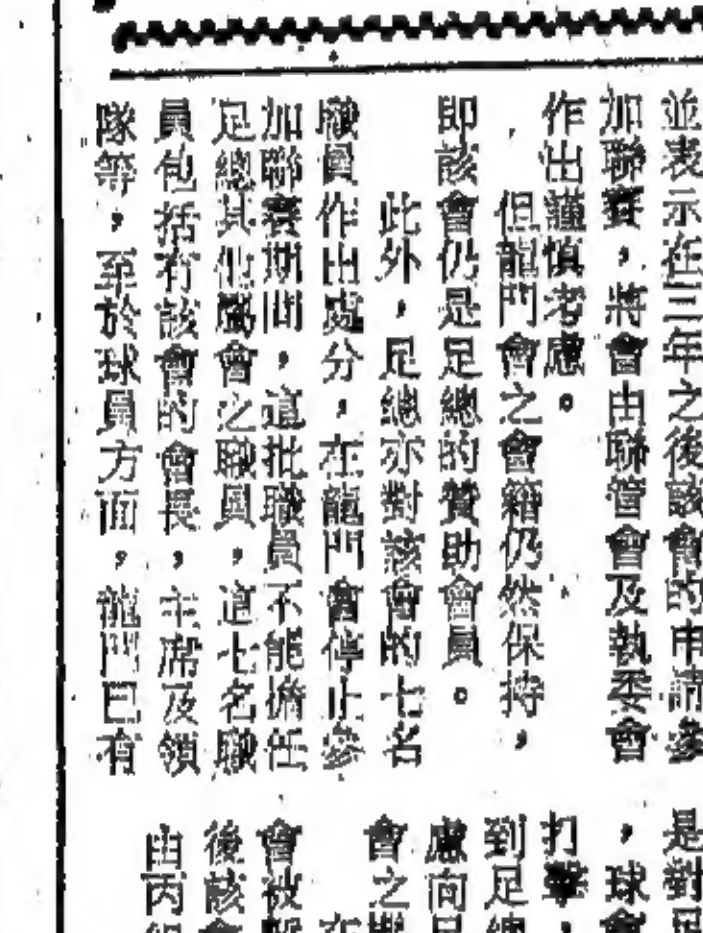 並表示在三年之後該會的申請參
加聯賽，將會由聯管會及執委會
作出謹慎考慮。
但龍門會之會籍仍然保持，
即該會仍是足總的贊助會員。
此外，足總亦對該會的七名
職員作出處分，在龍門會停止參
加聯賽期間，這批職員不能擔任
足總其他屬會之職員，這七名職
員包括有該會的會長，主席及領
隊等，至於球員方面，龍門已有
是對足
，球會
打擊，
到足總
慮向足
會之
在
會被
後該會
由丙組